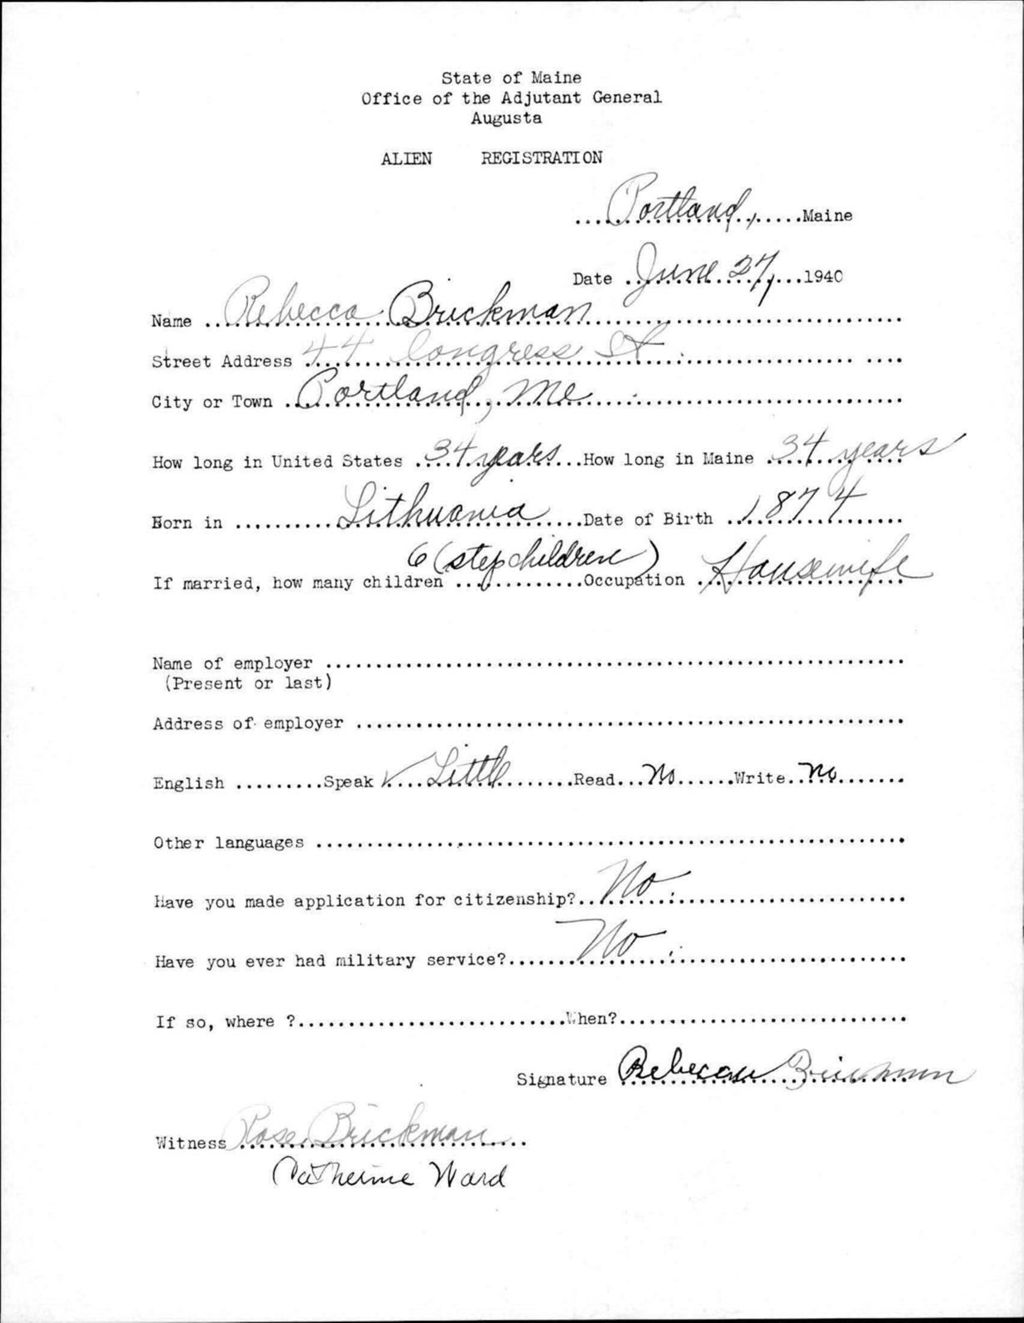 State of Maine
Office of the Adjutant General
Augusta
ALIEN REGISTRATION
Portland, Maine
Date June 27, 1940
Name Rebecca Brickman
Street Address 44 Congress St
City or Town Portland, Me
How long in United States 34 years How long in Maine 34 years
Born in Lithuania Date of Birth 1874
If married, how many children 6 (stepchildren) Occupation Housewife
Name of employer
(Present or last)
Address of employer
English Speak ✓ Little Read No Write No
Other languages
Have you made application for citizenship? No
Have you ever had military service? No
If so, where ? When?
Signature Rebecca Brickman
Witness Rose Brickman
Catherine Ward